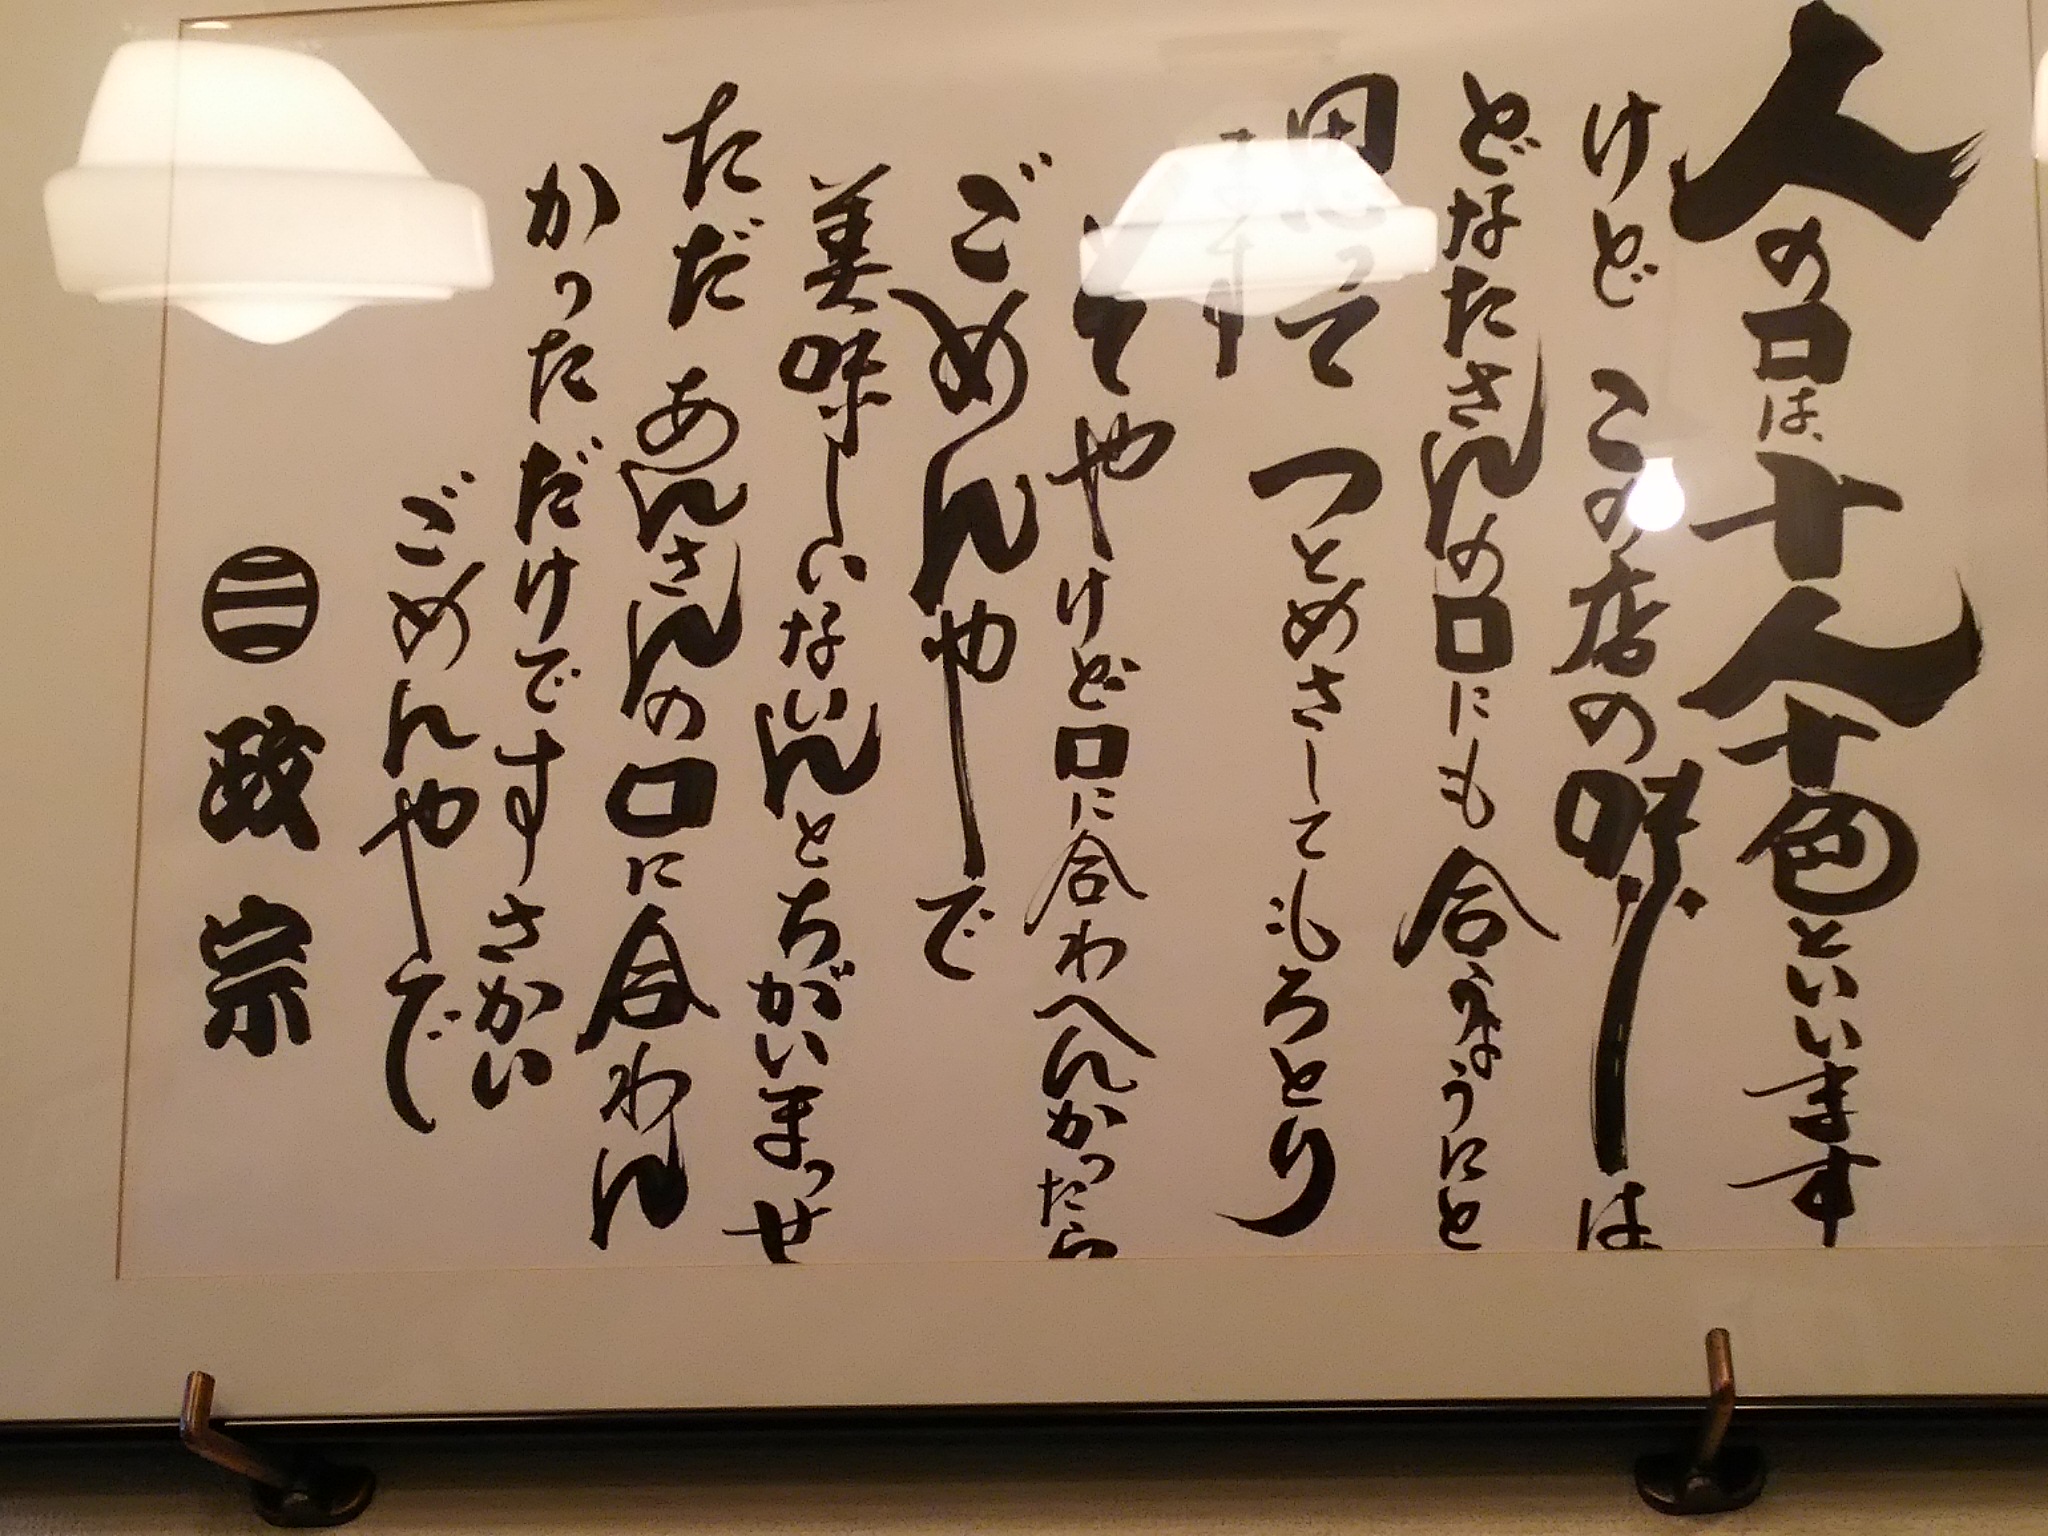 人の口は、十人十色といいます
けどこの店の味は
どなたさんの口にも合うようにと
思ってつとめさしてもろとり
ます
そやけど口に合わへんかったら
ごめんやーで
美味しいないんとちがいまっせ
ただあんさんの口に合わん
かっただけですさかい
ごめんやで
政宗